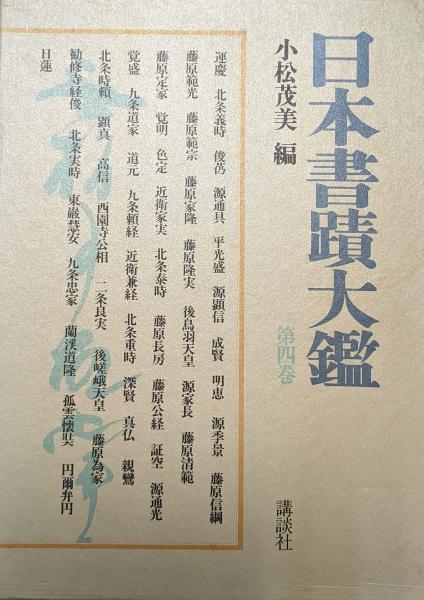 日本書蹟大鑑
第四巻
小松茂美 編
講談社
運慶 北条義時 俊芿 源通具 平光盛 源顕信 成賢 明恵 源季景 藤原信綱
藤原範光 藤原範宗 藤原家隆 藤原隆実 後鳥羽天皇 源家長 藤原清範
藤原定家 覚明 色定 近衛家実 北条泰時 藤原長房 藤原公経 証空 源通光
覚盛 九条道家 道元 九条頼経 近衛兼経 北条重時 深賢 真仏 親鸞
北条時頼 顕真 高信 西園寺公相 二条良実 後嵯峨天皇 藤原為家
勧修寺経俊 北条実時 東巌慧安 九条忠家 蘭渓道隆 孤雲懐奘 円爾弁円
日蓮